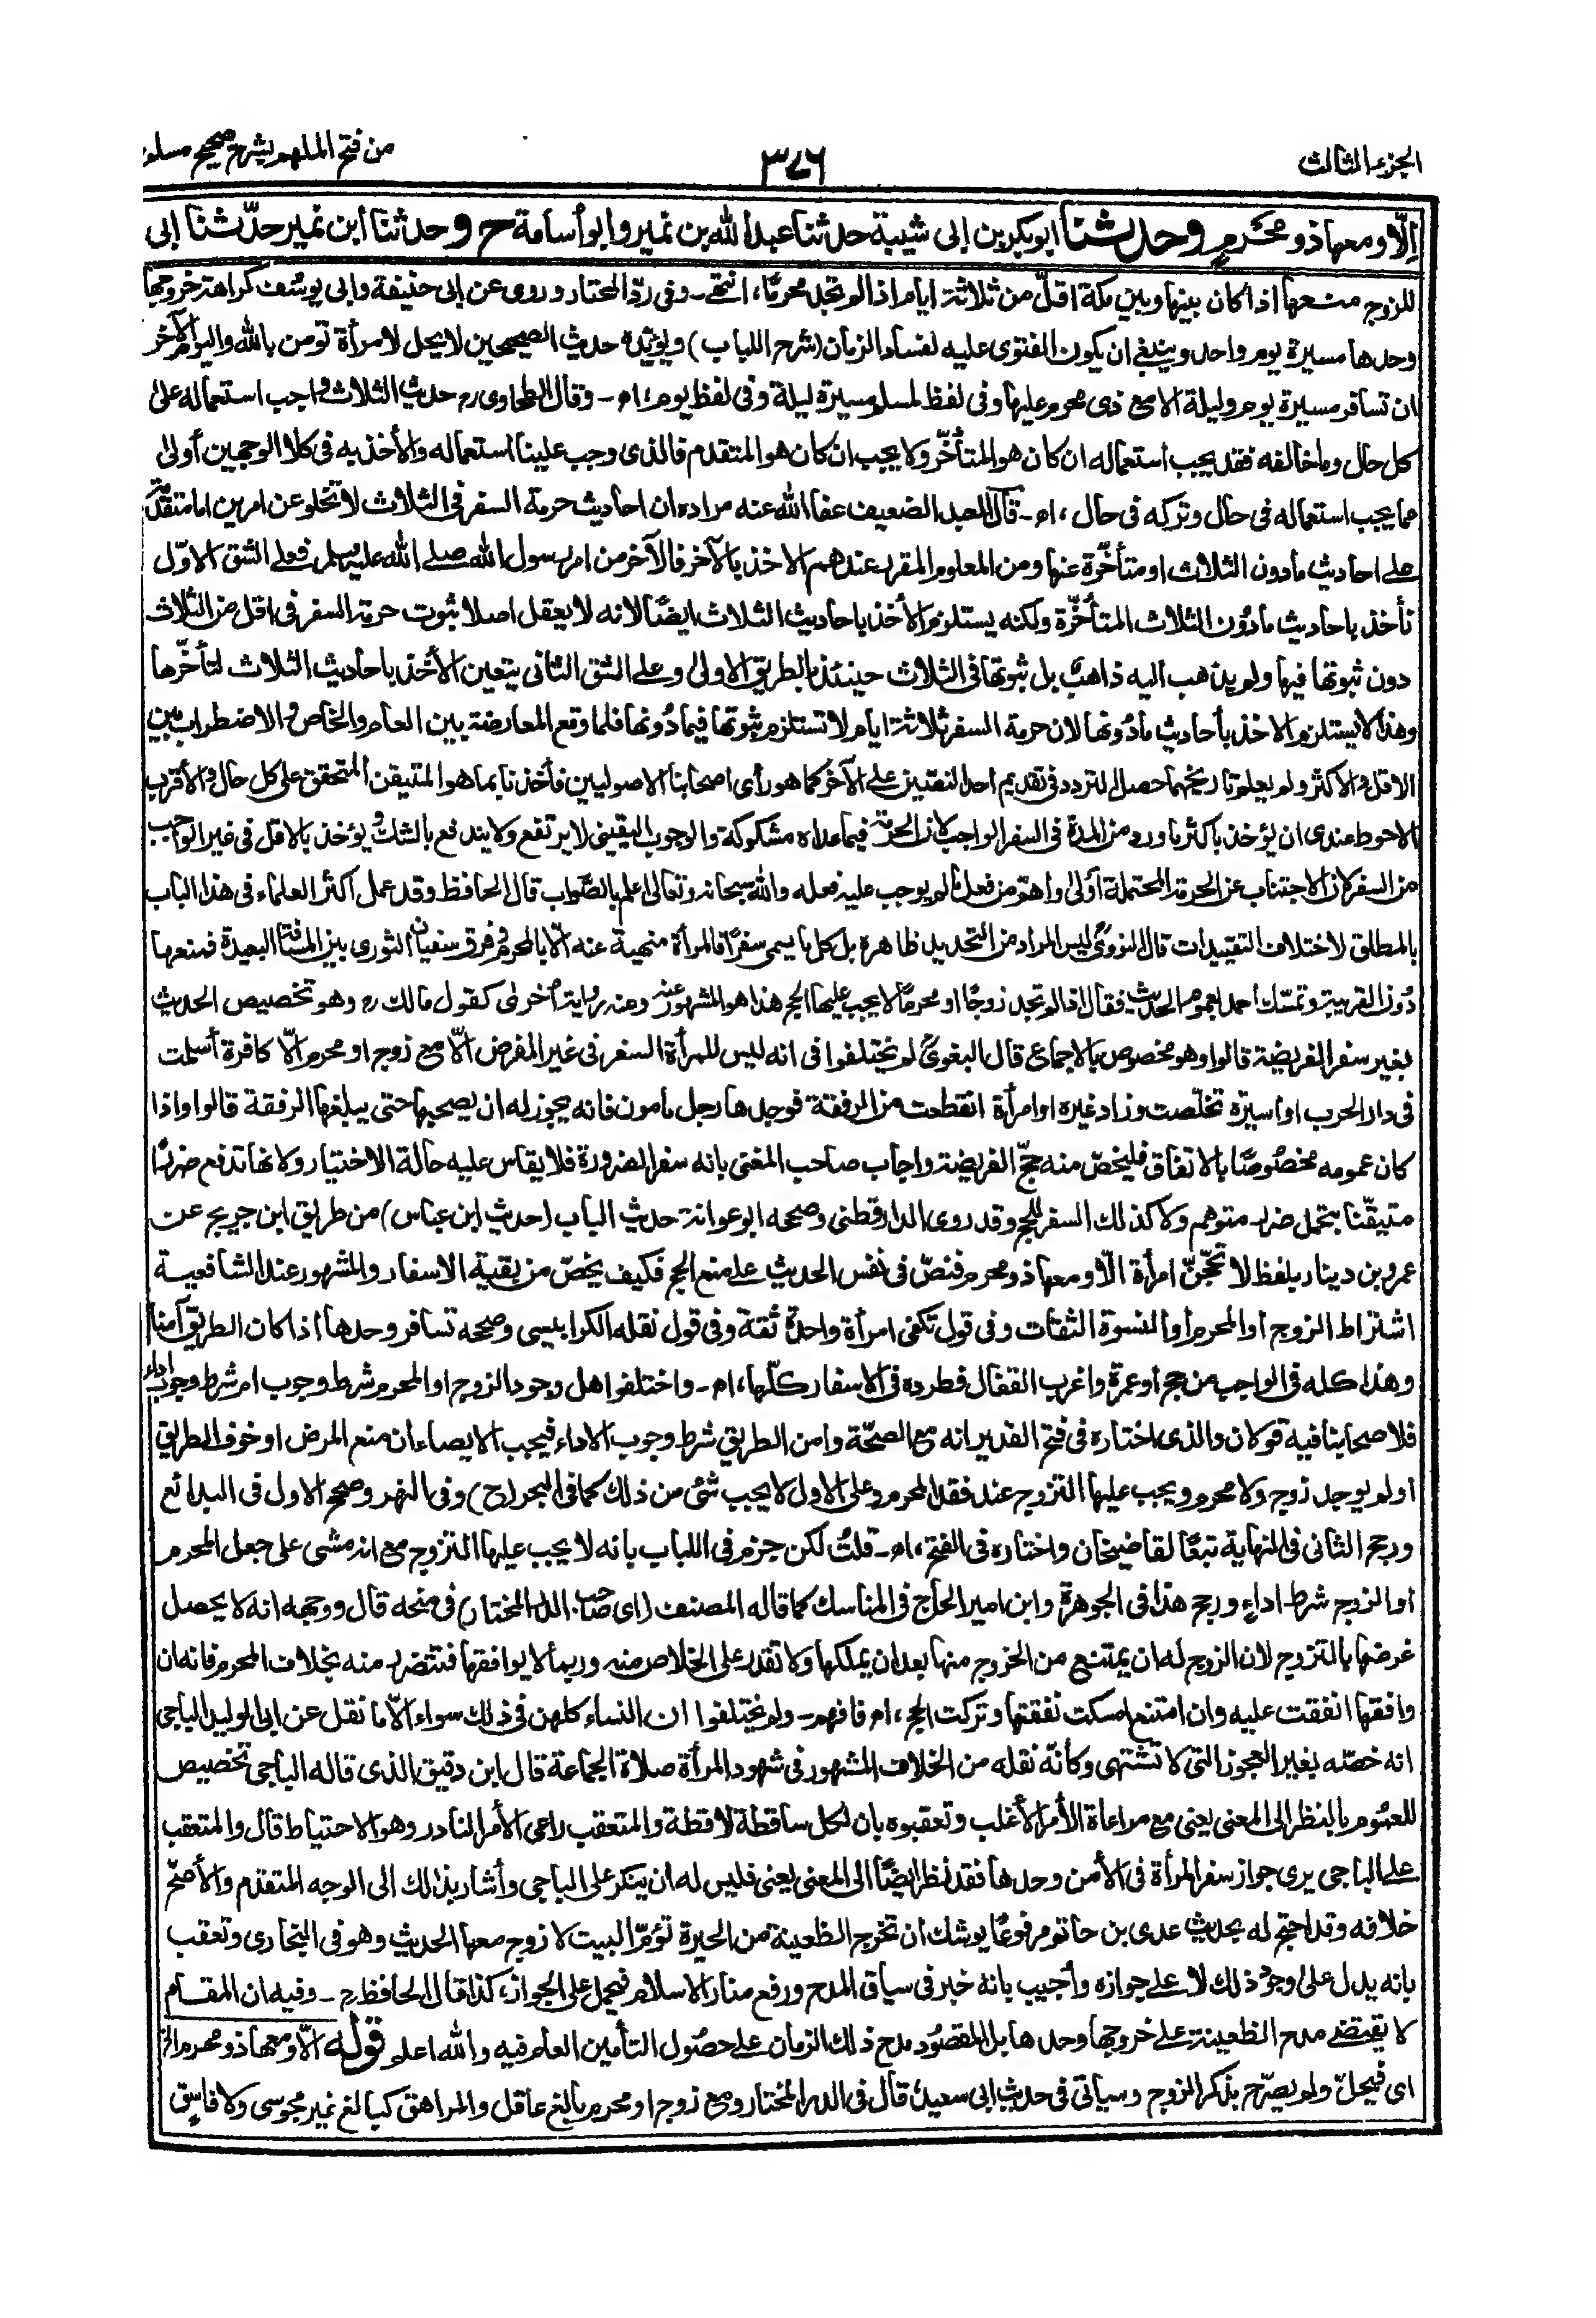 الجزء الثالث
٣٧٦
من فتح الملهم بشرح صحيح مسلم
إلّا ومعها ذو محْرمٍ وحدثنا ابو بكر بن ابى شيبة حدثنا عبد الله بن نمير وابو أسامة ح وحدثنا ابن نمير حدّثنا ابى
للزوج منعها اذا كان بينها وبين مكة اقلّ من ثلاثة ايام اذا لم تجد محرمًا، انتهى - وفى ردّ المحتار وروى عن ابى حنيفة وابى يوسُف كراهة خروجها
وحدها مسيرة يوم واحد وينبغى ان يكون الفتوى عليه لفساد الزمان (شرح اللباب) ويؤيّده حديث الصحيحين لا يحل لامرأة تؤمن بالله واليوم الآخر
ان تسافر مسيرة يوم وليلة الا مع ذى محرم عليها وفى لفظ لمسلم مسيرة ليلة وفى لفظ يوم، اه - وقال الطحاوى رح حديث الثلاث واجب استعماله على
كل حال وما خالفه فقد يجب استعماله ان كان هو المتأخّر ولا يجب ان كان هو المتقدم فالذى وجب علينا استعماله والأخذ به فى كلا الوجهين أولى
مما يجب استعماله فى حال وتركه فى حال، اه - قال العبد الضعيف عفا الله عنه مراده ان احاديث حرمة السفر فى الثلاث لا تخلو عن امرين اما متقدّمة
على احاديث ما دون الثلاث او متأخّرة عنها ومن المعلوم المقرر عندهم الاخذ بالآخر فالآخر من امر رسول الله صلى الله عليه وسلم فعلى الشق الاوّل
نأخذ باحاديث ما دُون الثلاث المتأخّرة ولكنه يستلزم الأخذ باحاديث الثلاث ايضًا لانه لا يعقل اصلا ثبوت حرمة السفر فى اقل من الثلاث
دون ثبوتها فيها ولم يذهب اليه ذاهبٌ بل ثبوتها فى الثلاث حينئذ بالطريق الاولى وعلى الشق الثانى يتعين الأخذ باحاديث الثلاث لتأخّرها
وهذا لا يستلزم الاخذ بأحاديث ما دُونها لان حرمة السفر ثلاثة ايام لا تستلزم ثبوتها فيما دُونها فلما وقع المعارضة بين العام والخاص والاضطراب بين
الاقل والاكثر ولم يعلم تاريخهما حصل التردد فى تقديم احد النصّين على الآخر كما هو رأى اصحابنا الاصوليين فأخذنا بما هو المتيقن المتحقق على كل حال والأقرب
الاحوط عندى ان يؤخذ باكثر ما ورد من المدة فى السفر الواجب لان الحرمة فيما عداه مشكوكة والوجوب اليقينى لا يرتفع ولا يندفع بالشك ويؤخذ بالاقل فى غير الواجب
من السفر لان الاجتناب عن الحرمة المحتملة أولى واهمّ من فعل ما لم يوجب عليه فعله والله سبحانه وتعالى اعلم بالصَّواب قال الحافظ وقد عمل اكثر العلماء فى هذا الباب
بالمطلق لاختلاف التقييدات قال النووىُّ ليس المراد من التحديد ظاهره بل كل ما يسمى سفرًا فالمرأة منهية عنه الّا بالمحرم وفرق سفيان الثورى بين المسافة البعيدة فمنعها
دُون القريبة وتمسّك احمد بعموم الحديث فقال اذا لم تجد زوجًا او محرمًا لا يجب عليها الحج هذا هو المشهور عنه وعنه رواية أخرى كقول مالك رح وهو تخصيص الحديث
بغير سفر الفريضة قالوا وهو مخصوص بالاجماع قال البغوىّ لم يختلفوا فى انه ليس للمرأة السفر فى غير الفرض الّا مع زوج او محرم الّا كافرة أسلمت
فى دار الحرب او أسيرة تخلّصت وزاد غيره او امرأة انقطعت من الرفقة فوجدها رجل مأمون فانه يجوز له ان يصحبها حتى يبلغها الرفقة قالوا واذا
كان عمومه مخصُوصًا بالاتفاق فليخصّ منه حجّ الفريضة واجاب صاحب المغنى بانه سفر الضرورة فلا يقاس عليه حالة الاختيار ولانها تدفع ضررًا
متيقّنا بتحمل ضرر متوهم ولا كذلك السفر للحج وقد روى الدارقطنى وصححه ابو عوانة حديث الباب (حديث ابن عباس) من طريق ابن جريج عن
عمرو بن دينار بلفظ لا تحجّنّ امرأة الّا ومعها ذو محرم فنصّ فى نفس الحديث على منع الحج فكيف يخصّ من بقية الاسفار والمشهور عند الشافعية
اشتراط الزوج أو المحرم أو النسوة الثقات وفى قول تكفى امرأة واحدة ثقة وفى قول نقله الكرابيسى وصححه تسافر وحدها اذا كان الطريق آمنا
وهذا كله فى الواجب من حج أو عمرة واغرب القفال فطرده فى الاسفار كلّها، اه - واختلفوا هل وجود الزوج او المحرم شرط وجوب ام شرط وجوب اداء
فلاصحابنا فيه قولان والذى اختاره فى فتح القدير انه مع الصحّة وامن الطريق شرط وجوب الاداء فيجب الايصاء ان منع المرض او خوف الطريق
او لم يوجد زوج ولا محرم ويجب عليها التزوج عند فقد المحرم وعلى الاول لا يجب شئ من ذلك كما فى البحر (ح) وفى النهر وصحح الاول فى البدائع
ورجح الثانى فى النهاية تبعًا لقاضيخان واختاره فى الفتح، اه - قلتُ لكن جزم فى اللباب بانه لا يجب عليها التزوج مع انه مشى على جعل المحرم
او الزوج شرط اداءٍ ورجح هذا فى الجوهرة وابن امير الحاج فى المناسك كما قاله المصنف (اى صاحب الدر المختار) فى منحه قال ووجهه انه لا يحصل
غرضها بالتزوج لان الزوج له ان يمتنع من الخروج منها بعد ان يملكها ولا تقدر على الخلاص منه وربما لا يوافقها فتتضرر منه بخلاف المحرم فانه ان
وافقها انفقت عليه وان امتنع امسكت نفقتها وتركت الحج، اه فافهم - ولم يختلفوا ان النساء كلهن فى ذلك سواء الّا ما نقل عن ابى الوليد الباجى
انه خصّه بغير العجوز التى لا تشتهى وكأنّه نقله من الخلاف المشهور فى شهود المرأة صلاة الجماعة قال ابن دقيق الذى قاله الباجى تخصيص
للعمُوم بالنظر الى المعنى يعنى مع مراعاة الأمر الأغلب وتعقبوه بان لكل ساقطة لاقطة والمتعقب راعى الأمر النادر وهو الاحتياط قال والمتعقب
على الباجى يرى جواز سفر المرأة فى الأمن وحدها فقد نظر ايضًا الى المعنى يعنى فليس له ان ينكر على الباجى وأشار بذلك الى الوجه المتقدم والأصحّ
خلافه وقد احتج له بحديث عدى بن حاتم مرفوعًا يوشك ان تخرج الظعينة من الحيرة تؤمّ البيت لا زوج معها الحديث وهو فى البخارى وتعقب
بانه يدل على وجود ذلك لا على جوازه وأجيب بانه خبر فى سياق المدح ورفع منار الاسلام فيحمل على الجواز، كذا قال الحافظ رح - وفيه ان المقام
لا يقتضى مدح الظعينة على خروجها وحدها بل المقصُود مدح ذلك الزمان على حصُول التأمين العام فيه والله اعلم قوله الّا ومعها ذو محرم الخ
اى فيحلّ ولم يصرّح بذكر الزوج وسيأتى فى حديث ابى سعيد قال فى الدر المختار ومع زوج او محرم بالغ عاقل والمراهق كبالغ غير مجوسى ولا فاسق